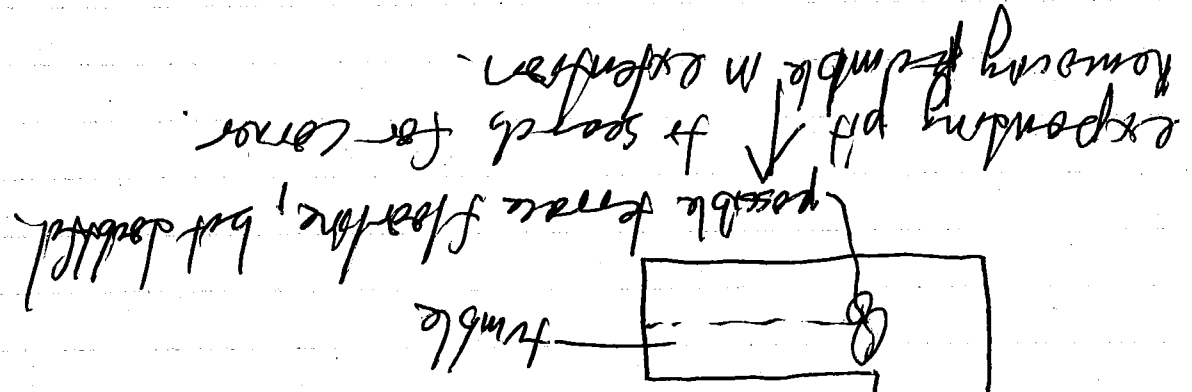 tumble
possible terrace floorline, but doubtful.
expanding pit to search for corner.
Removing tumble in extention.